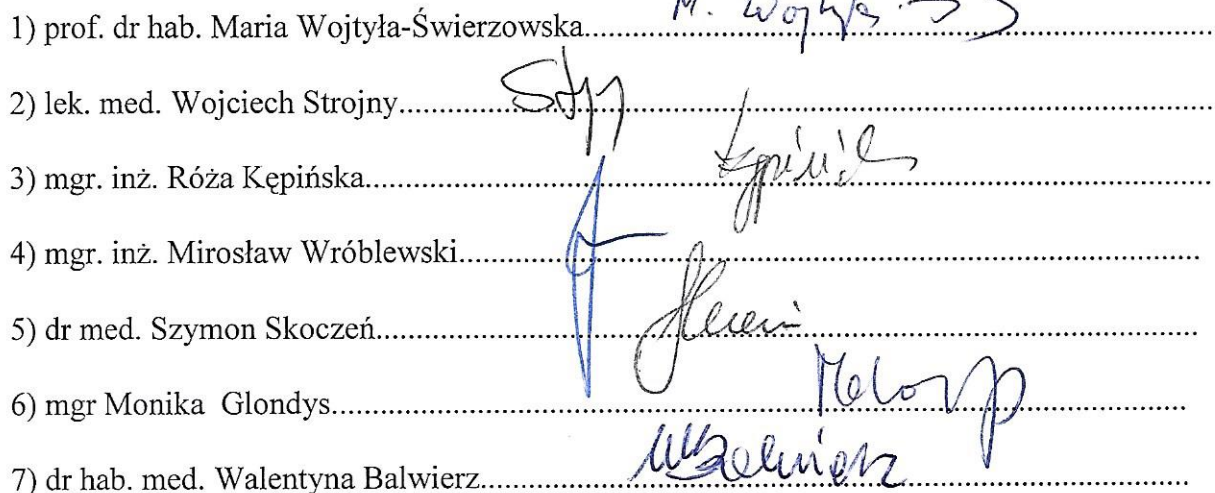 1) prof. dr hab. Maria Wojtyła-Świerzowska.......... M. Wojtyła-
2) lek. med. Wojciech Strojny..........
3) mgr. inż. Róża Kępińska..........
4) mgr. inż. Mirosław Wróblewski..........
5) dr med. Szymon Skoczeń..........
6) mgr Monika Glondys..........
7) dr hab. med. Walentyna Balwierz.......... WBalwierz